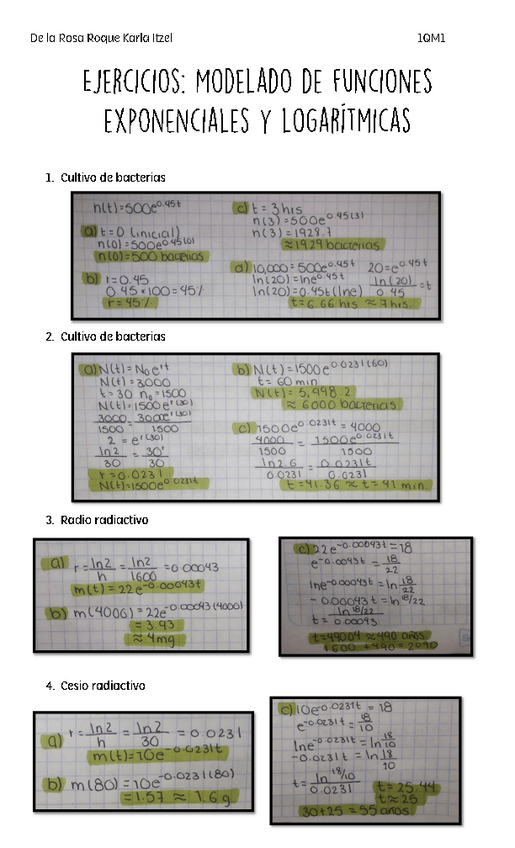 De la Rosa Roque Karla Itzel 1QM1
EJERCICIOS: MODELADO DE FUNCIONES
EXPONENCIALES Y LOGARÍTMICAS
1. Cultivo de bacterias
n(t)=500e^0.45t
a) t=0 (inicial)
n(0)=500e^0.45(0)
n(0)=500 bacterias
b) r=0.45
0.45*100=45%
r=45%
c) t=3 hrs
n(3)=500e^0.45(3)
n(3)=1928.7
≈1929 bacterias
d) 10,000=500e^0.45t 20=e^0.45t
ln(20)=lne^0.45t ln(20)/0.45=t
ln(20)=0.45t(lne)
t=6.66 hrs ≈7hrs
2. Cultivo de bacterias
a) N(t)=N₀e^rt
N(t)=3000
t=30 n₀=1500
N(t)=1500e^r(30)
3000/1500=3000e^r(30)/1500
2=e^r(30)
ln2/30=30r/30
r=0.0231
N(t)=1500e^0.0231t
b) N(t)=1500e^0.0231(60)
t=60 min
N(t)=5,998.2
≈6000 bacterias
c) 1500e^0.0231t=4000
4000/1500=1500e^0.0231t/1500
ln2.6/0.0231=0.0231t/0.0231
t=41.36≈t=41 min.
3. Radio radiactivo
a) r=ln2/h=ln2/1600=0.00043
m(t)=22e^-0.00043t
b) m(4000)=22e^-0.00043(4000)
=3.93
≈4mg
c) 22e^-0.00043t=18
e^-0.00043t=18/22
lne^-0.00043t=ln 18/22
-0.00043t=ln 18/22
t=ln 18/22/0.00043
≈490 años
4. Cesio radiactivo
a) r=ln2/h=ln2/30=0.0231
m(t)=10e^-0.0231t
b) m(80)=10e^-0.0231(80)
=1.57≈1.6g
c) 10e^-0.0231t=18
e^-0.0231t=18/10
lne^-0.0231t=ln 18/10
-0.0231t=ln 18/10
t=ln 18/10/0.0231
t=25.44
t≈25
30+25=55 años